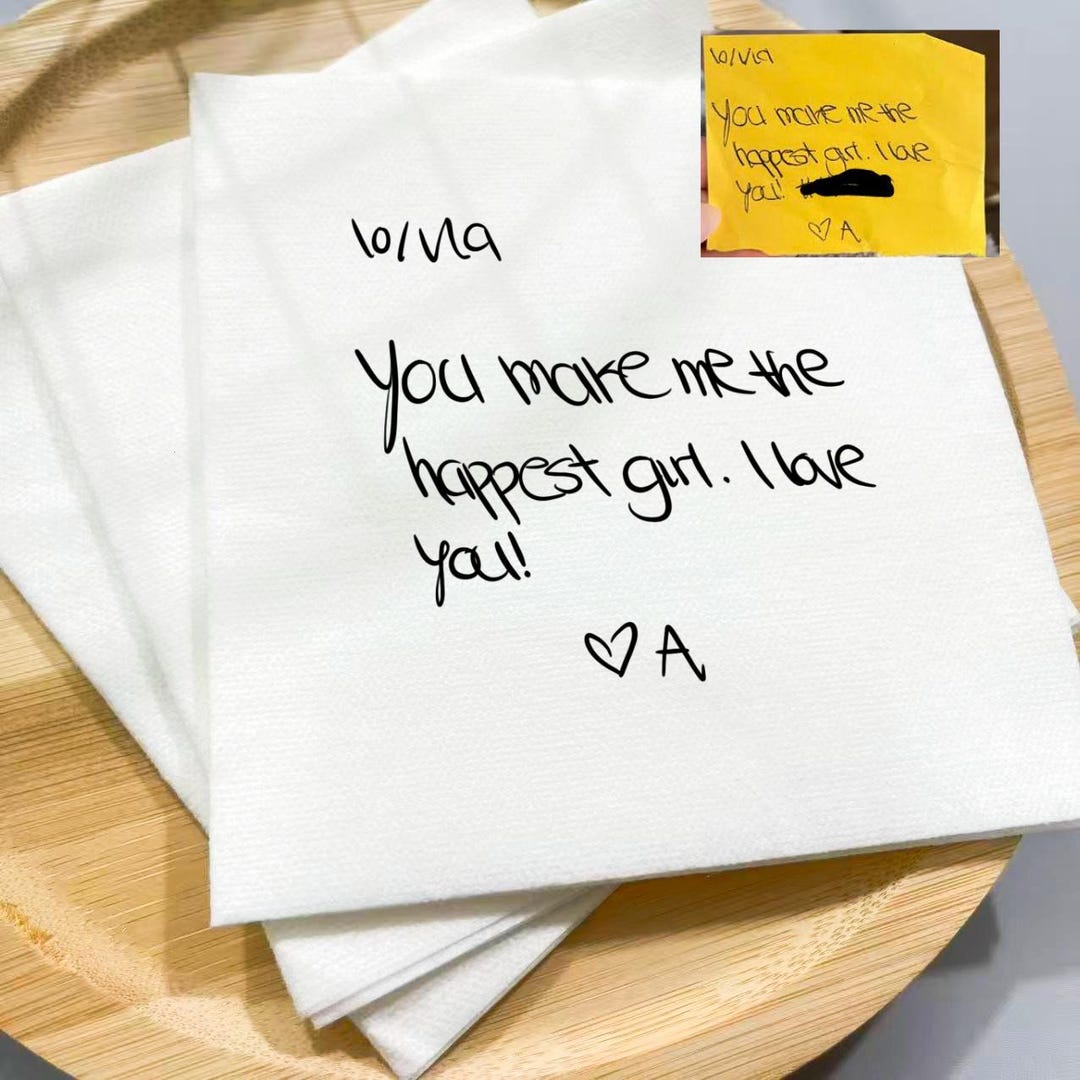 10/1/19
You make me the
happest girl. I love
you!
♡ A
10/1/19
You make me the
happest girl. I love
you!
♡ A